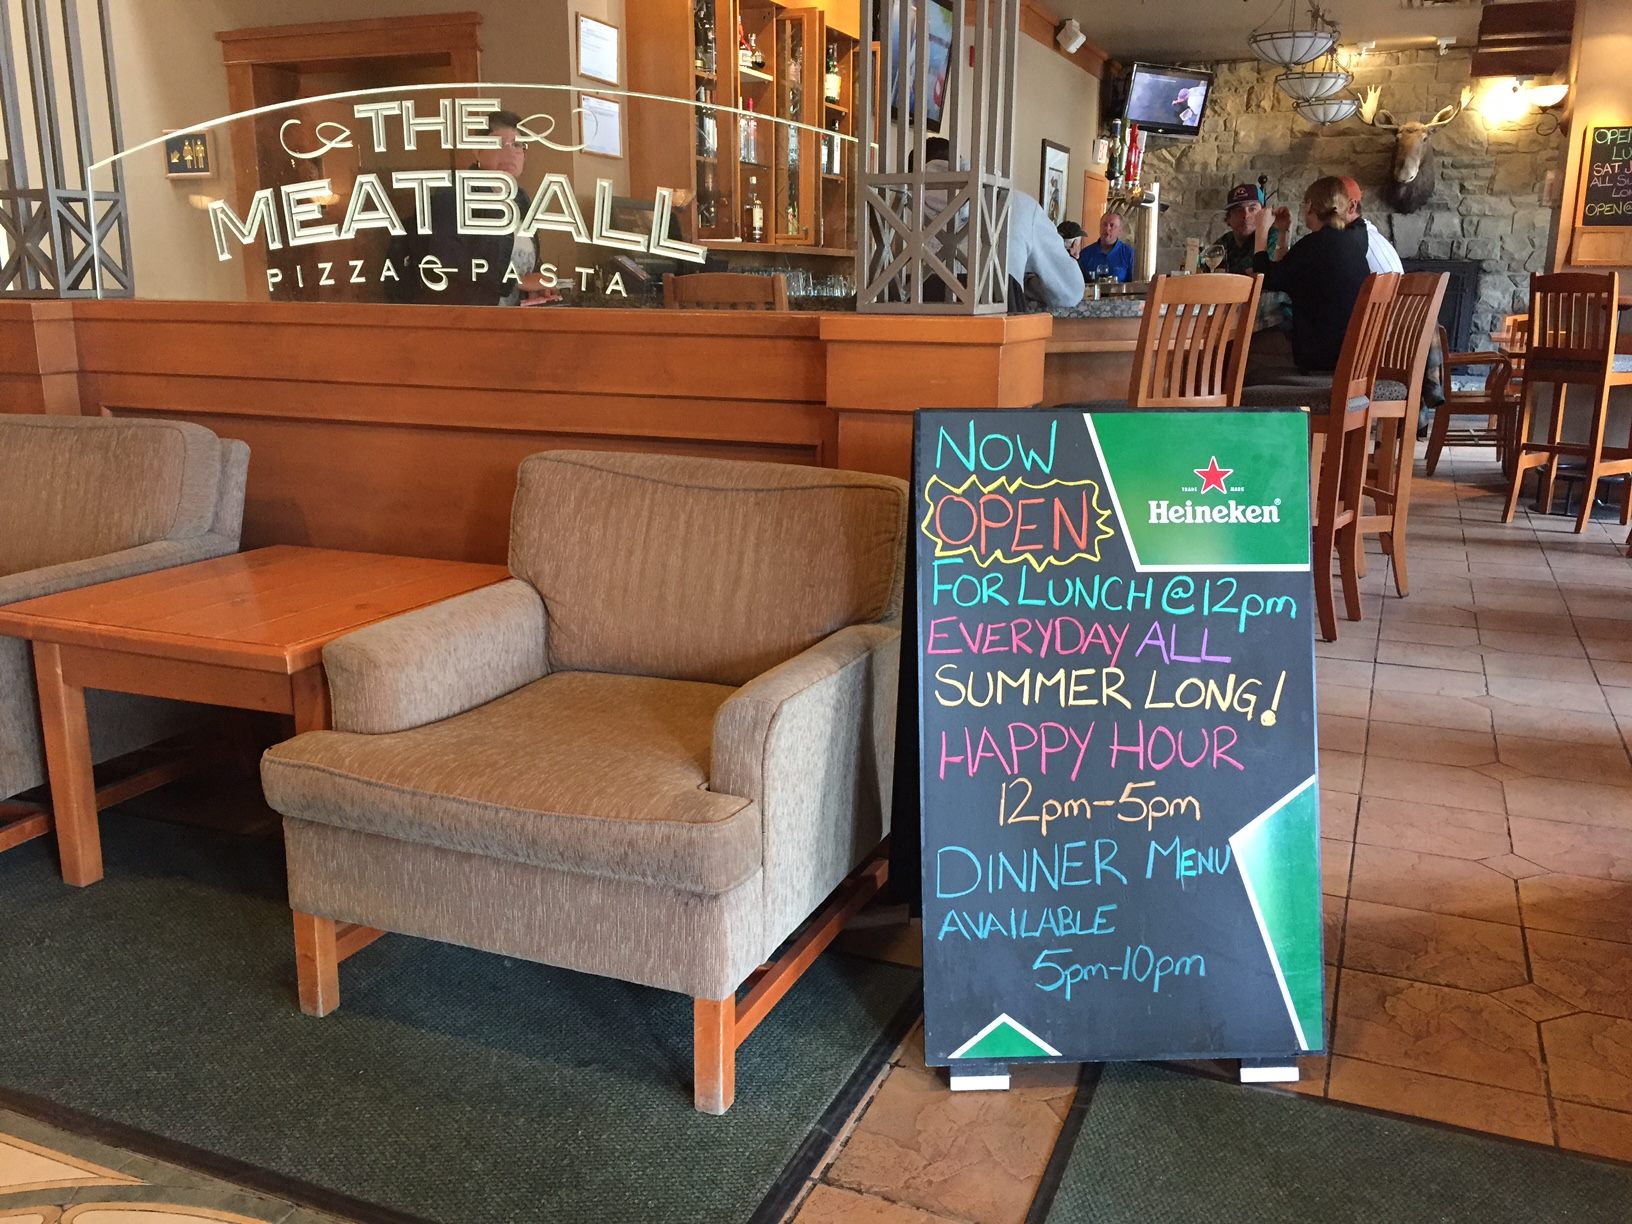 THE
MEATBALL
PIZZA & PASTA
NOW
OPEN
FOR LUNCH @ 12pm
EVERYDAY ALL
SUMMER LONG!
HAPPY HOUR
12pm-5pm
DINNER MENU
AVAILABLE
5pm-10pm
TRADE MARK
Heineken®
OPEN
SAT
ALL
OPEN@